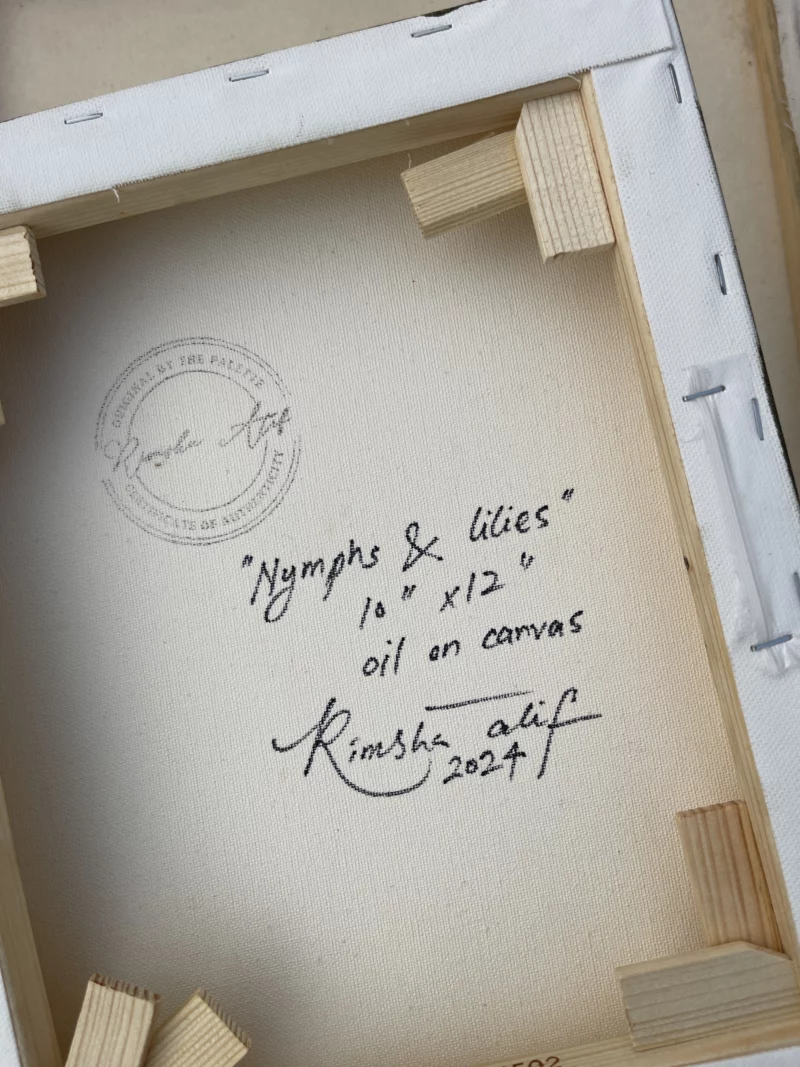 ORIGINAL BY THE PALETTE
Rimsha Atif
CERTIFICATE OF AUTHENTICITY
"Nymphs & lilies"
10" x12"
oil on canvas
Rimsha atif
2024